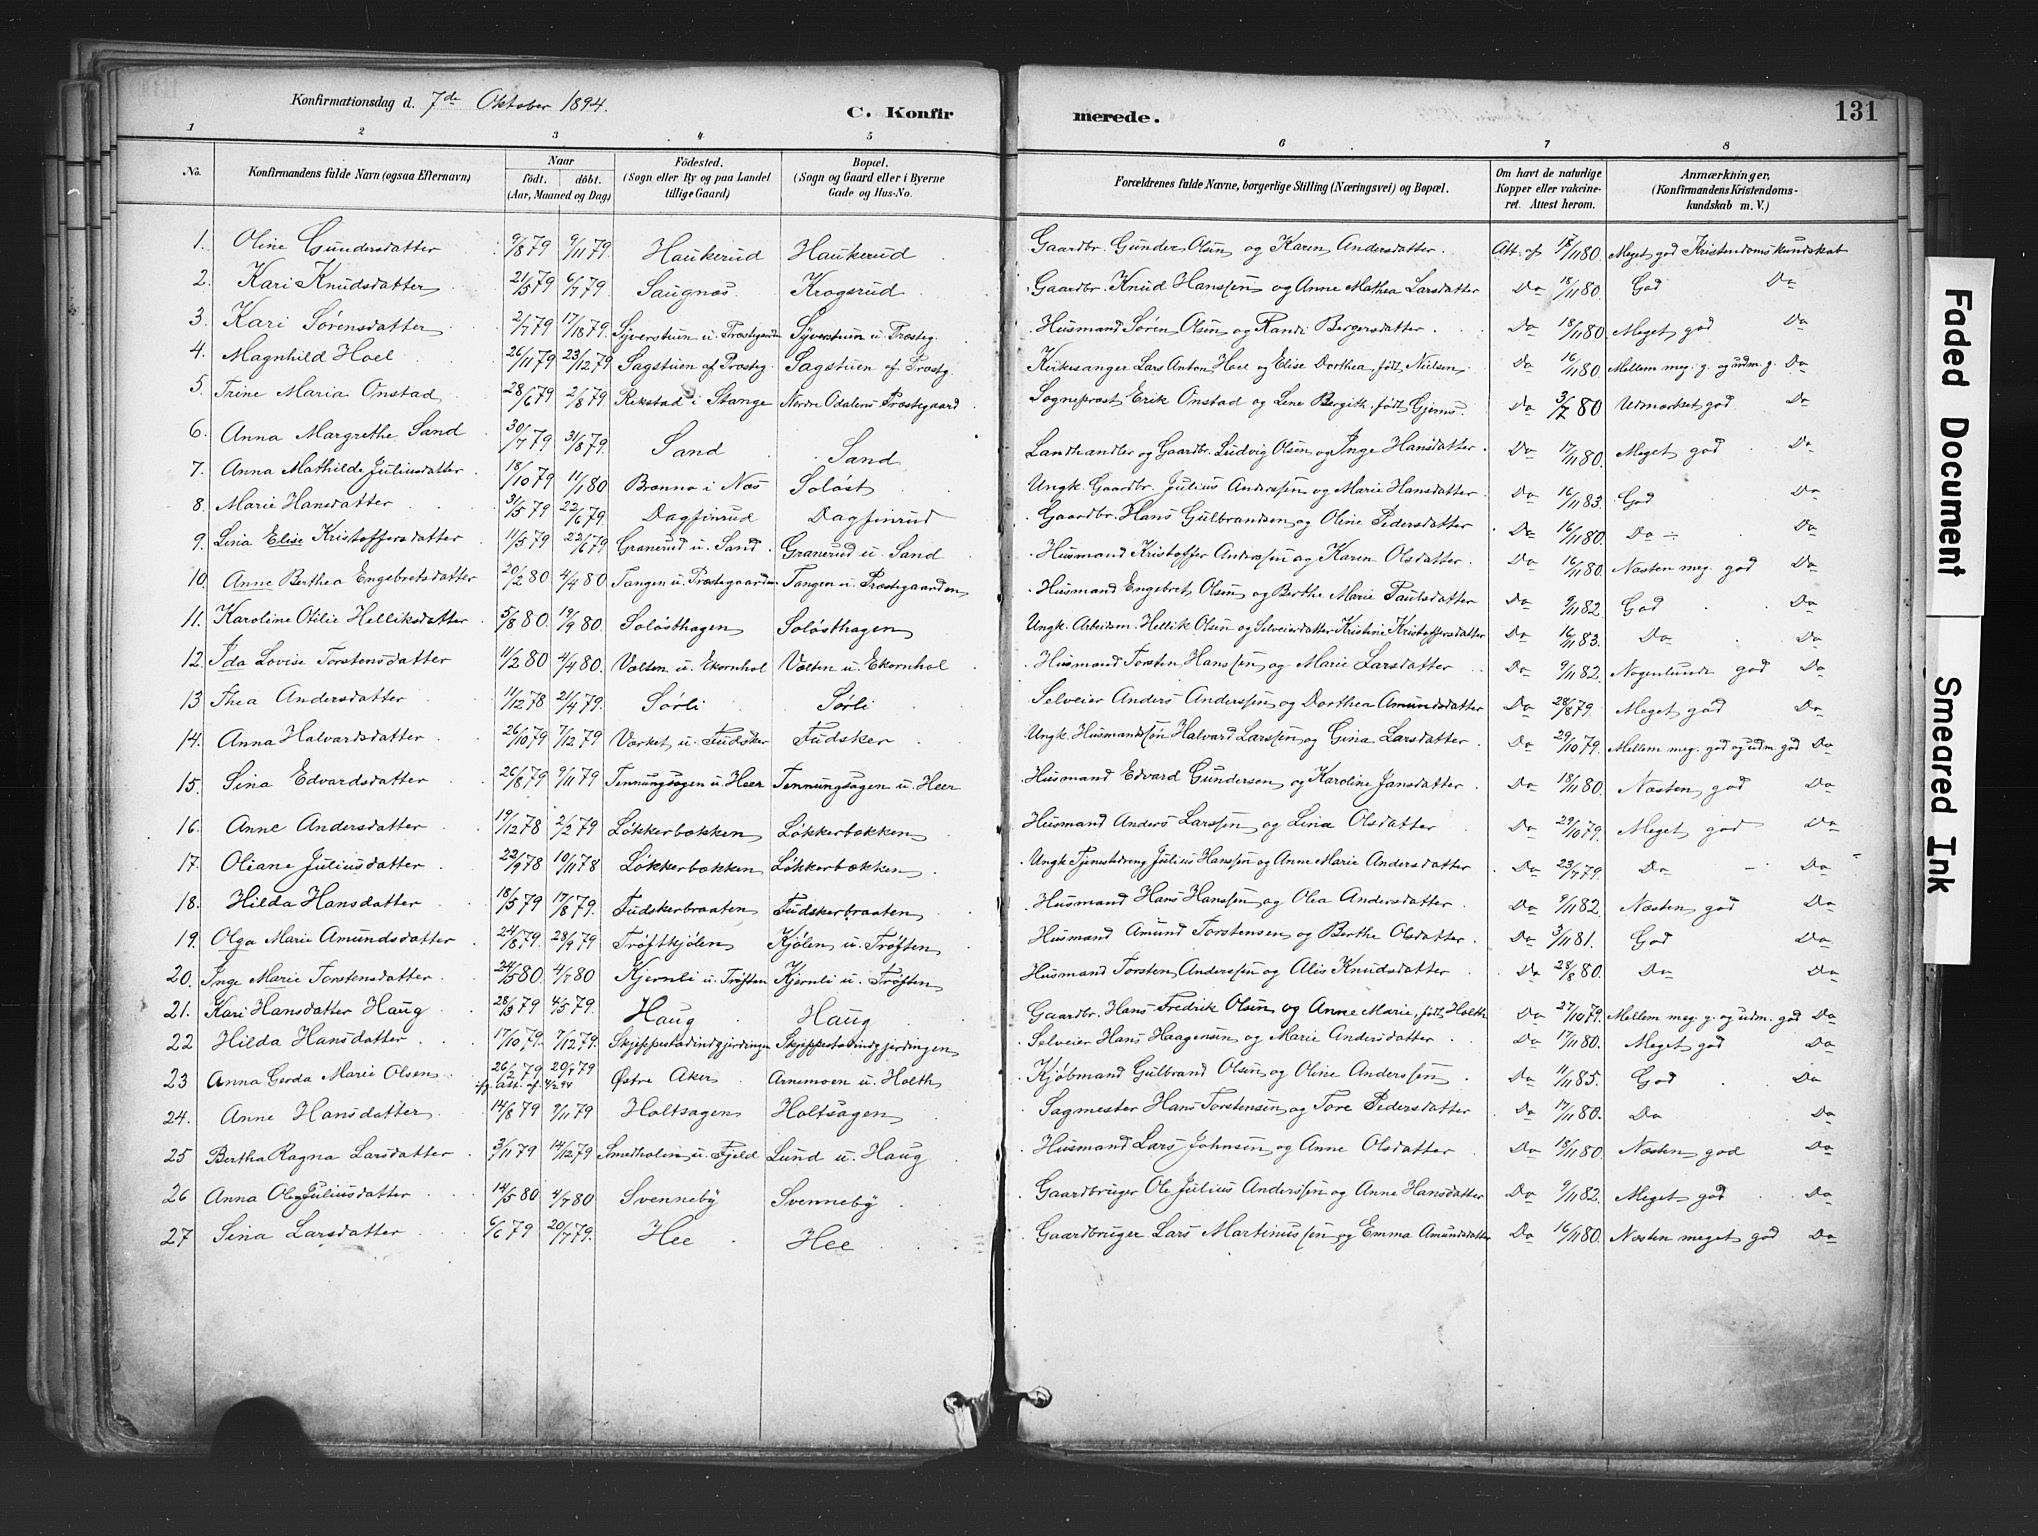 Konfirmationsdag d. 7de Oktober 1894.
C. Konfirmerede.
131
1 2 3 4 5 6 7 8
No. Konfirmandens fulde Navn (ogsaa Efternavn) Naar födt. döbt. (Aar, Maaned og Dag) Födested. (Sogn eller By og paa Landet tillige Gaard) Bopæl. (Sogn og Gaard eller i Byerne Gade og Hus-No. Forældrenes fulde Navne, borgerlige Stilling (Næringsvei) og Bopæl. Om havt de naturlige Kopper eller vakcineret. Attest herom. Anmærkninger. (Konfirmandens Kristendomskundskab m. V.)
1. Oline Gundersdatter 9/8 79 9/11 79 Haukerud Haukerud Gaardbr. Gunder Olsen og Karen Andersdatter. Att. af 18/11 80. Meget god Kristendomskundskab
2. Kari Knudsdatter 21/5 79 6/7 79 Saugnæs. Krogsrud Gaardbr. Knud Hanssen og Anne Mathea Larsdatter Do 18/11 80 God Do
3. Kari Sørensdatter 2/7 79 17/8 79 Syverstuen u. Præstegaarden Syverstuen u. Præsteg. Husmand Søren Olsen og Randi Bergersdatter. Do 18/11 80. Meget god Do
4. Magnhild Hoel 26/11 79 23/12 79 Sagstuen af Præsteg. Sagstuen af Præstg. Kirkesanger Lars Anton Hoel og Elise Dorthea, født Nielsen Do 16/11 80 Mellem meg. g. og udm. g. Do
5. Trine Maria Onstad 28/6 79 2/8 79 Rekstad i Stange Nordre Odalens Præstegaard Sogneprost Erik Onstad og Lene Bergith, født Gjems. Do 3/7 80 Udmærket god Do
6. Anna Margrethe Sand 30/7 79 31/8 79. Sand Sand Landhandler og Gaardbr. Ludvig Olsen og Inge Hansdatter. Do 17/11 80. Meget god Do
7. Anna Mathilde Juliusdatter 18/10 79 11/1 80 Brænna i Næs Soløst Ungk. Gaardbr. Julius Anderssen og Marie Hansdatter. Do 16/11 83. God Do
8. Marie Hansdatter 31/5 79 22/6 79. Dagfinrud Dagfinrud Gaardbr. Hans Gulbrandsen og Oline Pedersdatter Do 16/11 80. Do Do
9. Lina Elise Kristoffersdatter 11/5 79 22/6 79 Granerud u. Sand. Granerud u. Sand Husmand Kristoffer Anderssen og Karen Olsdatter. Do 16/11 80. Næsten meg. god Do
10. Anne Berthea Engebretsdatter 20/2 80 4/4 80 Tangen u. Præstegaarden Tangen u. Præstegaarden Husmand Engebret Olsen og Berthe Marie Paulsdatter Do 9/11 82. God Do
11. Karoline Otilie Helliksdatter 5/8 80 19/9 80. Soløsthagen Soløsthagen Ungk. Arbeidsm. Hellik Olsen og Selveierdatter Kristine Kristoffersdatter Do 16/11 83. Do Do
12. Ida Lovise Torstensdatter 11/2 80 4/4 80. Vælten u. Ekornhol Vælten u. Ekornhol Husmand Torsten Hanssen og Marie Larsdatter Do 9/11 82. Nogenlunde god Do
13 Thea Andersdatter 11/12 78 21/4 79. Sørli Sørli Selveier Anders Anderssen og Dorthea Amundsdatter Do 28/8 79. Meget god Do
14. Anna Halvardsdatter 26/10 79 7/12 79 Værket u. Fudsker Fudsker Ungk. Husmandssøn Halvard Larssen og Gina Larsdatter. Do 29/10 79. Mellem meg. god og udm. god Do
15. Sina Edvardsdatter 26/8 79 9/11 79 Tennungsagen u. Heer Tennungsagen u. Heer Husmand Edvard Gundersen og Karoline Jansdatter Do 18/11 80. Næsten god Do
16. Anne Andersdatter 19/12 78 2/2 79 Løkkerbækken Løkkerbækken Husmand Anders Larssen og Lina Olsdatter Do 29/10 79. Meget god Do
17. Oliane Juliusdatter 22/9 78 10/11 78 Løkkerbækken Løkkerbækken Ungk. Tjenestedreng Julius Hanssen og Anne Marie Andersdatter Do 23/7 79. Do Do
18. Hilda Hansdatter 18/5 79 17/8 79. Fudskerbraaten Fudskerbraaten Husmand Hans Hanssen og Olea Andersdatter Do 9/11 82. Næsten god Do
19. Olga Marie Amundsdatter 24/8 79. 28/9 79 Trøftkjølen Kjølen u. Trøften Husmand Amund Torstensen og Berthe Olsdatter. Do 3/11 81. God Do
20. Inge Marie Torstensdatter 24/5 80 4/7 80 Kjernli u. Trøften Kjernli u. Trøften Husmand Torsten Anderssen og Alis Knudsdatter Do 28/8 80. Do Do
21. Kari Hansdatter Haug 28/3 79 4/5 79. Haug Haug Gaardbr. Hans Fredrik Olsen og Anne Marie, født Holth Do 27/10 79. Mellem meg. g. og udm. god Do
22 Hilda Hansdatter 17/10 79. 7/12 79. Skjeppestadindgjerdingen Skjeppestadindgjerdingen Selveier Hans Haagensen og Marie Andersdatter Do 17/11 80. Meget god Do
23 Anna Gerda Marie Olsen 26/2 79 20/4 79 ifg. att. af 4/2 94 Østre Aker Arnemoen u. Holth Kjøbmand Gulbrand Olsen og Oline Anderssen Do 11/11 85. God Do
24. Anne Hansdatter 14/8 79 9/11 79 Holtsagen Holtsagen Sagmester Hans Torstensen og Tore Pedersdatter Do 17/11 80. Do Do
25 Bertha Ragna Larsdatter 3/11 79 14/12 79 Smedholen u. Fjeld Lund u. Haug Husmand Lars Johnsen og Anne Olsdatter Do 18/11 80 Næsten god Do
26 Anna Olga Juliusdatter 14/5 80 4/7 80 Svenneby Svenneby Gaardbruger Ole Julius Anderssen og Anne Hansdatter Do 9/11 82. Meget god Do
27 Sina Larsdatter 6/6 79 20/7 79. Hee Hee Gaardbruger Lars Martinussen og Emma Amundsdatter Do 16/11 80. Næsten meget god Do
Faded Document
Smeared Ink